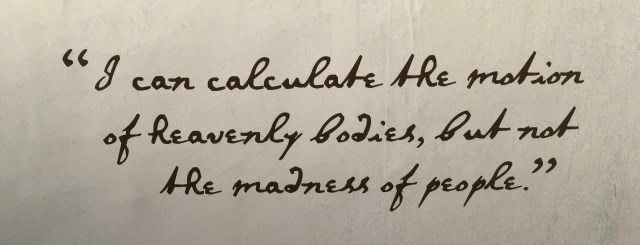 “I can calculate the motion
of heavenly bodies, but not
the madness of people.”